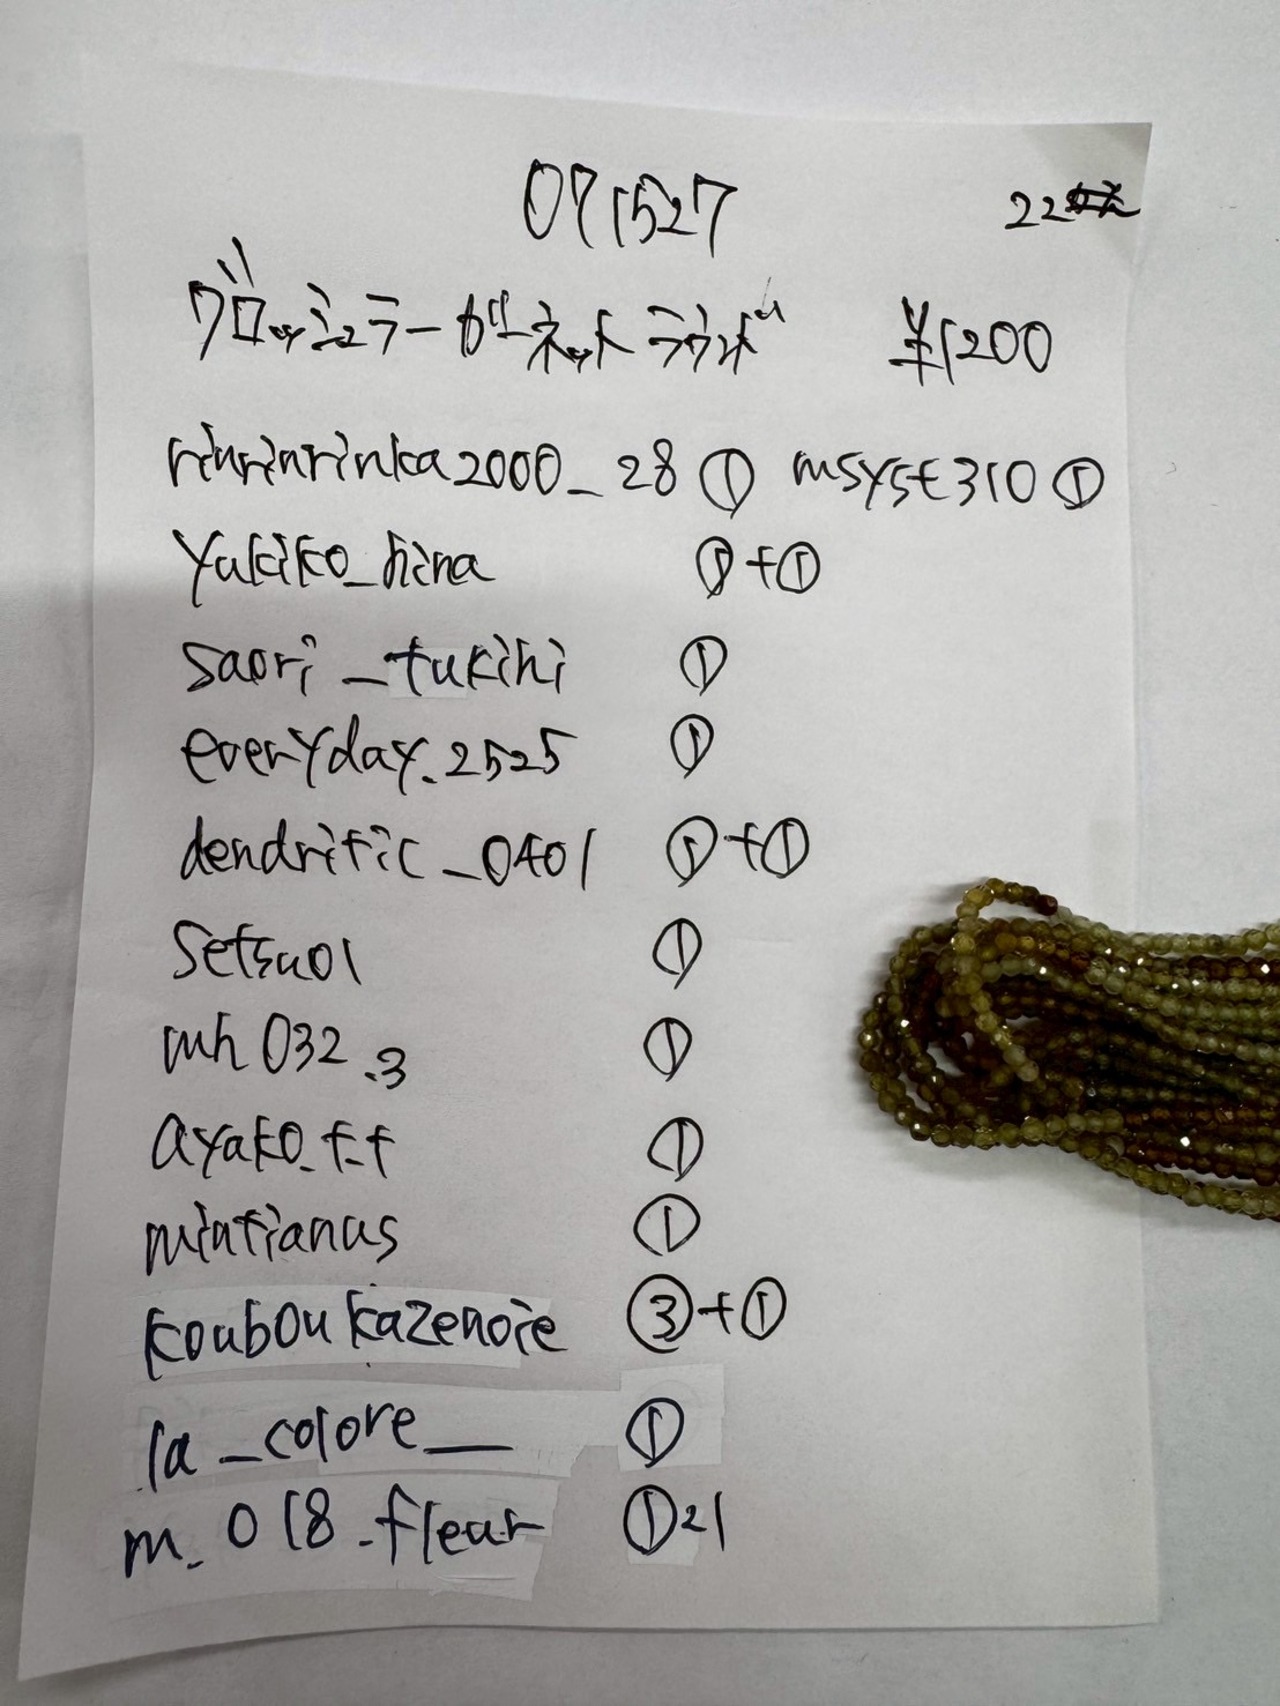 071527
22
グロッシュラーガーネットラウンド ¥1200
rinrinrinka2000_28 ① msyst310 ①
yukiko_hina ①+①
saori_tukihi ①
everyday.2525 ①
dendritic_0401 ①+①
setsu01 ①
mh032.3 ①
ayako_t.t ①
mintianus ①
kouboukazenoie ③+①
la_colore__ ①
m_018.fleur ①21